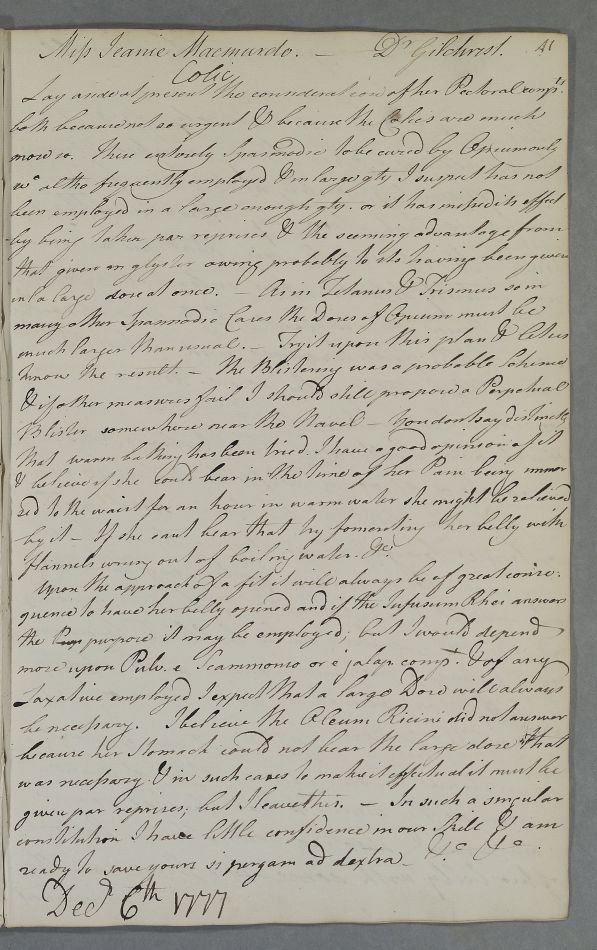 Miss Jeanie Macmurdo. — Dr Gilchrist. 41
Colic
Lay aside at present the consideration of her Pectoral compts.
both because not so urgent & because the Colics are much
more so. These entirely Spasmodic to be cured by Opium only
wc altho frequently employed & in large qty I suspect has not
been employed in a large enough qty. or it has missed its effect
by being taken par reprises & the seeming advantage from
that given in glyster owing probably to its having been given
in a large dose at once. — As in Tetanus & Trismus so in
many other Spasmodic Cases the Doses of Opium must be
much larger than usual. — Try it upon this plan & let us
know the result. — The Blistering was a probable Scheme
& if other measures fail I should still propose a Perpetual
Blister somewhere near the Navel — You dont say distinctly
that warm bathing has been tried. I have a good opinion of it
& believe if she could bear in the time of her Pain being immer
sed to the waist for an hour in warm water she might be relieved
by it — If she cant bear that try fomenting her belly with
flannels wrung out of boiling water. &c
Upon the approach of a fit it will always be of great conse-
quence to have her belly opened and if the Infusum Rhei answers
the purpose it may be employed; but I would depend
more upon Pulv. e Scammonio or e jalap. compt. & of any
Laxative employed I expect that a large Dose will always
be necessary. I believe the Oleum Ricini did not answer
because her Stomach could not bear the large dose that
was necessary & in such cases to make it effectual it must be
given par reprises; but I leave this. — In such a singular
constitution I have little confidence in our Skill & am
ready to save yours si pergam ad dextra — &c &c.
Decr 6th 1777